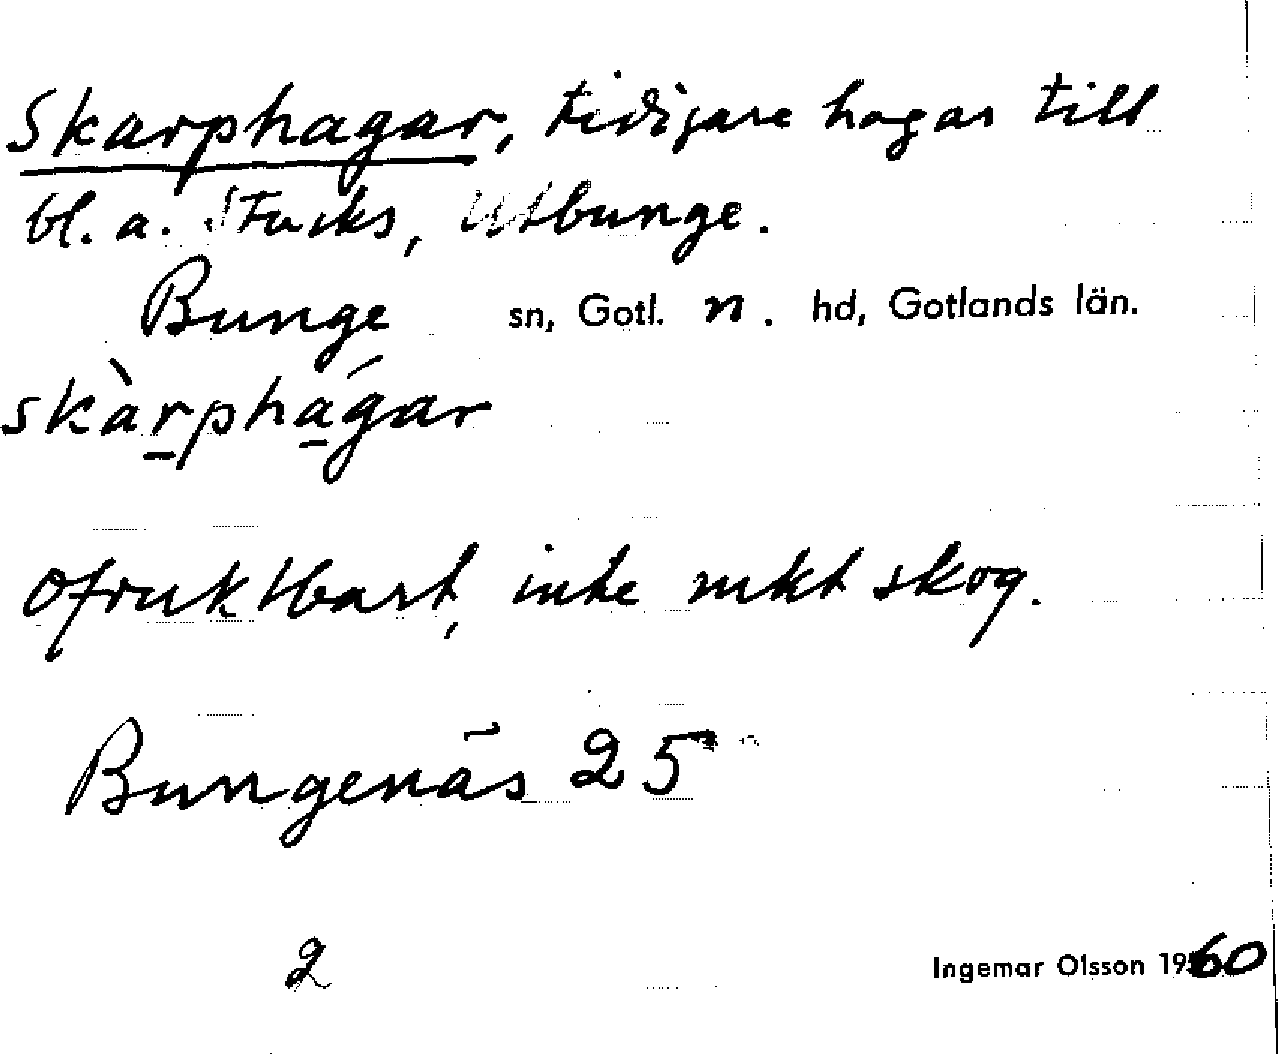 Skarphagar, tidigare hagar till
bl. a. Stucks, Utbunge.
Bunge sn, Gotl. n. hd, Gotlands län.
skàrphágar
Ofruktbart, inte mkt skog.
Bungenäs 25
2
Ingemar Olsson 1960